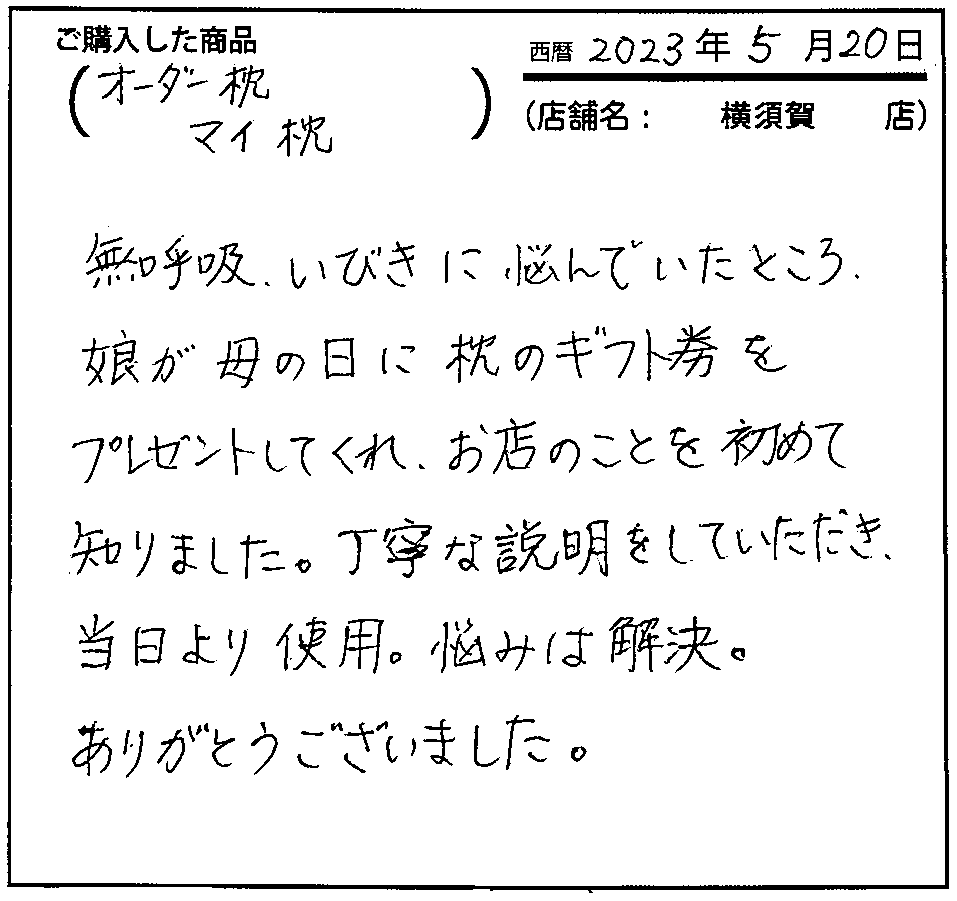 ご購入した商品
西暦 2023年 5月20日
(オーダー枕
マイ枕)
(店舗名: 横須賀 店)
無呼吸、いびきに悩んでいたところ、
娘が母の日に枕のギフト券を
プレゼントしてくれ、お店のことを初めて
知りました。丁寧な説明をしていただき、
当日より使用。悩みは解決。
ありがとうございました。